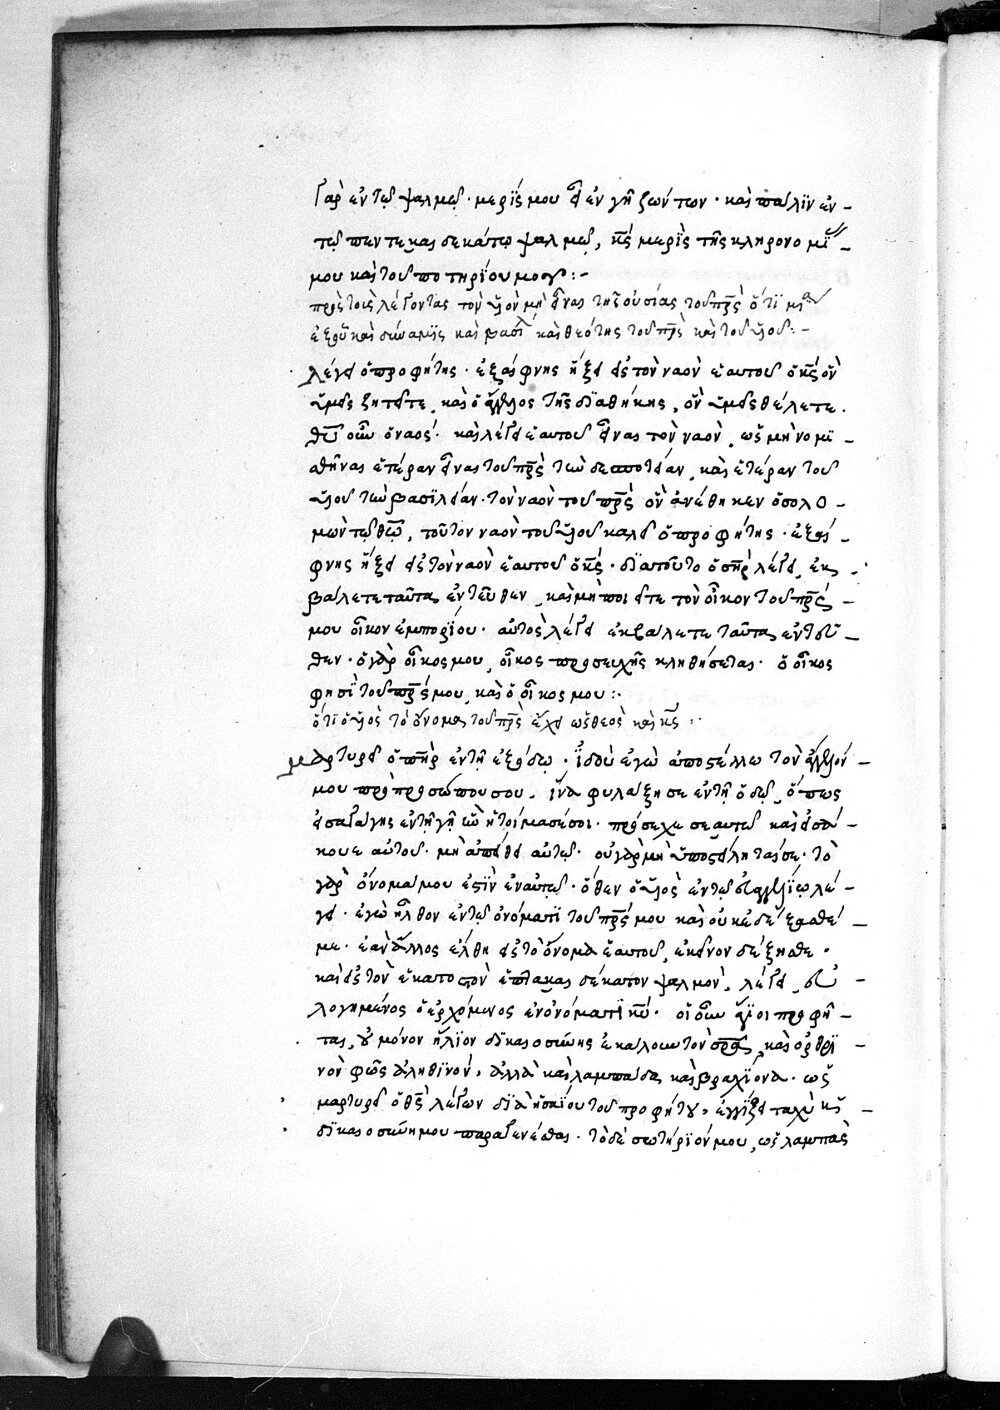 γὰρ ἐν τῷ ψαλμῷ· μερίς μου εἶ ἐν γῆ ζώντων· καὶ πάλϊν ἐν
τῷ πεντεκαιδεκάτῳ ψαλμῷ, κ̅ς̅ μερὶς τῆς κληρονομΐ
μου καὶ τοῦ ποτηρΐου μου :-
πρὸς τοὺς λέγοντας τὸν υἱὸν μὴ εἶναι τῆς οὐσίας τοῦ π̅ρ̅ς̅ ὅτϊ
καὶ δύναμϊς καὶ καὶ θεότης τοῦ π̅ρ̅ς̅ καὶ τοῦ υἱοῦ :-
λέγει ὁ προφήτης· ἐξαίφνης ἥξει εἰς τὸν ναὸν ἑαυτοῦ ὁ κ̅ς̅ ὃν
ὑμεῖς ζητεῖτε, καὶ ὁ ἄγγελος τῆς δϊαθήκης, ὃν ὑμεῖς θέλετε.
θ̅υ̅ οὖν ὁ ναός· καὶ λέγει ἑαυτοῦ εἶναι τὸν ναὸν, ὡς μὴ νομϊ
σθῆναι ἑτέραν εἶναι τοῦ π̅ρ̅ς̅ τὴν δεσποτείαν, καὶ ἑτέραν τοῦ
υἱοῦ τὴν βασϊλείαν· τὸν ναὸν τοῦ π̅ρ̅ς̅ ὃν ἀνέθηκεν ὁ σολο
μὼν τῷ θ̅ω̅, τοῦτον ναὸν τοῦ υἱοῦ καλεῖ ὁ προφήτης· ἐξαί
φνης ἥξει εἰς τὸν ναὸν ἑαυτοῦ ὁ κ̅ς̅· δϊατοῦτο ὁ σ̅η̅ρ̅ λέγει, ἐκ
βάλετε ταῦτα ἐντεῦθεν, καὶ μὴ ποιεῖτε τὸν οἶκον τοῦ π̅ρ̅ς̅
μου οἶκον ἐμπορΐου· αὐτὸς λέγει ἐκβάλετε ταῦτα ἐντεῦ
θεν· ὁ γὰρ οἶκος μου, οἶκος προσευχῆς κληθήσεται· ὁ οἶκος
φησῒ τοῦ π̅ρ̅ς̅ μου, καὶ ὁ οἶκος μου :-
ὅτϊ ὁ υἱὸς τὸ ὄνομα τοῦ π̅ρ̅ς̅ ἔχει ὡς θεὸς καὶ κ̅ς̅ :-
μαρτυρεῖ ὁ π̅η̅ρ̅ ἐν τῇ ἐξόδῳ· ἰδοὺ ἐγὼ ἀποστέλλω τὸν ἄγγελόν
μου πρὸ προσώπου σου, ἵνα φυλάξη σε ἐν τῇ ὁδῷ, ὅπως
εἰσαγάγης ἐν τῇ γῇ ὧ ἡτοίμασέ σοι· πρόσεχε σεαυτῷ καὶ εἰσά
κουε αὐτοῦ· μὴ ἀπείθει αὐτῷ· οὐ γὰρ μὴ ὑποστείληταί σε· τὸ
γὰρ ὄνομα μου ἐστῒν ἐν αὐτῷ· ὅθεν ὁ υἱὸς ἐν τῷ εὐαγγελΐῳ λέ
γει· ἐγὼ ἦλθον ἐν τῷ ὀνόματϊ τοῦ π̅ρ̅ς̅ μου καὶ οὐκ ἐδέξασθέ
με· ἐὰν ἄλλος ἔλθη εἰς τὸ ὄνομα ἑαυτοῦ, ἐκεῖνον δέξησθε·
καὶ εἰς τὸν ἑκατοστὸν ἑπτακαιδέκατον ψαλμὸν, λέγει, εὐ
λογημένος ὁ ἐρχόμενος ἐν ὀνόματϊ κ̅υ̅· οἱ οὖν ἅγϊοι προφῆ
ται, οὐ μόνον ἥλϊον δϊκαιοσύνης ἐκάλουν τὸν σ̅ρ̅α̅, καὶ ὀρθρϊ
νὸν φῶς ἀληθϊνὸν, ἀλλὰ καὶ λαμπάδα καὶ βραχΐονα· ὡς
μαρτυρεῖ ὁ θ̅ς̅ λέγων δϊὰ ἡσαΐου τοῦ προφήτου, ἐγγΐζει ταχὺ κ̅ς̅
δϊκαιοσύνη μου παραγενέσθαι· τὸ δὲ σωτήρϊόν μου, ὡς λαμπὰς